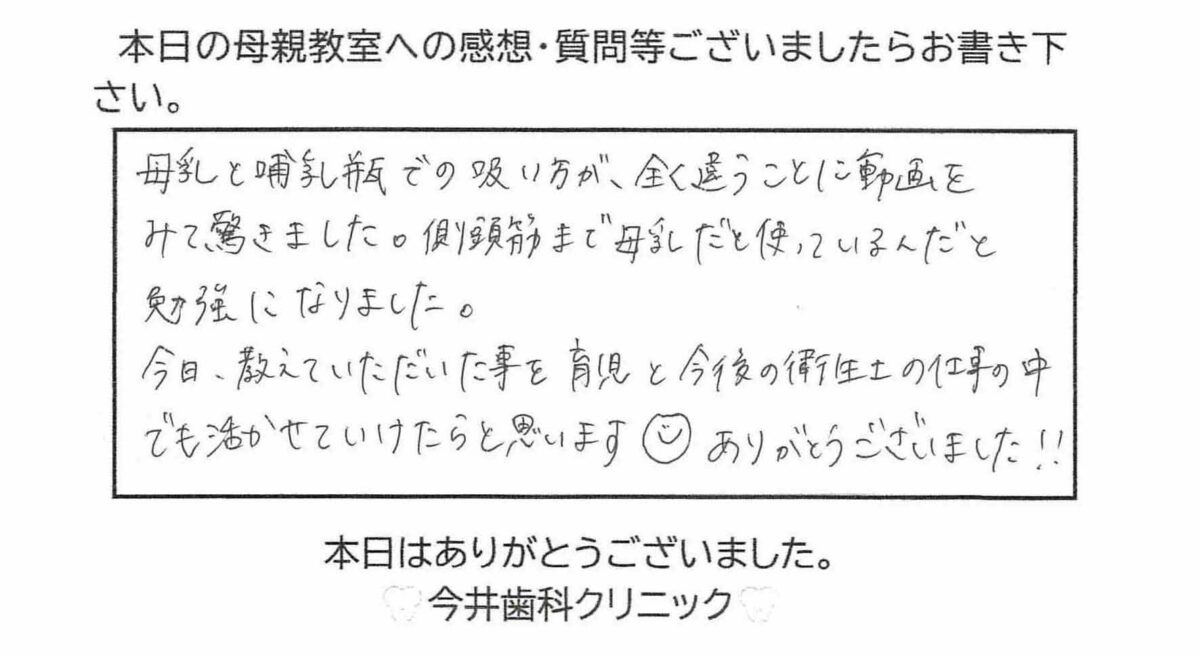 本日の母親教室への感想・質問等ございましたらお書き下
さい。
母乳と哺乳瓶での吸い方が、全く違うことに動画を
みて驚きました。側頭筋まで母乳だと使っているんだと
勉強になりました。
今日、教えていただいた事を育児と今後の衛生士の仕事の中
でも活かせていけたらと思います ありがとうございました!!
本日はありがとうございました。
今井歯科クリニック